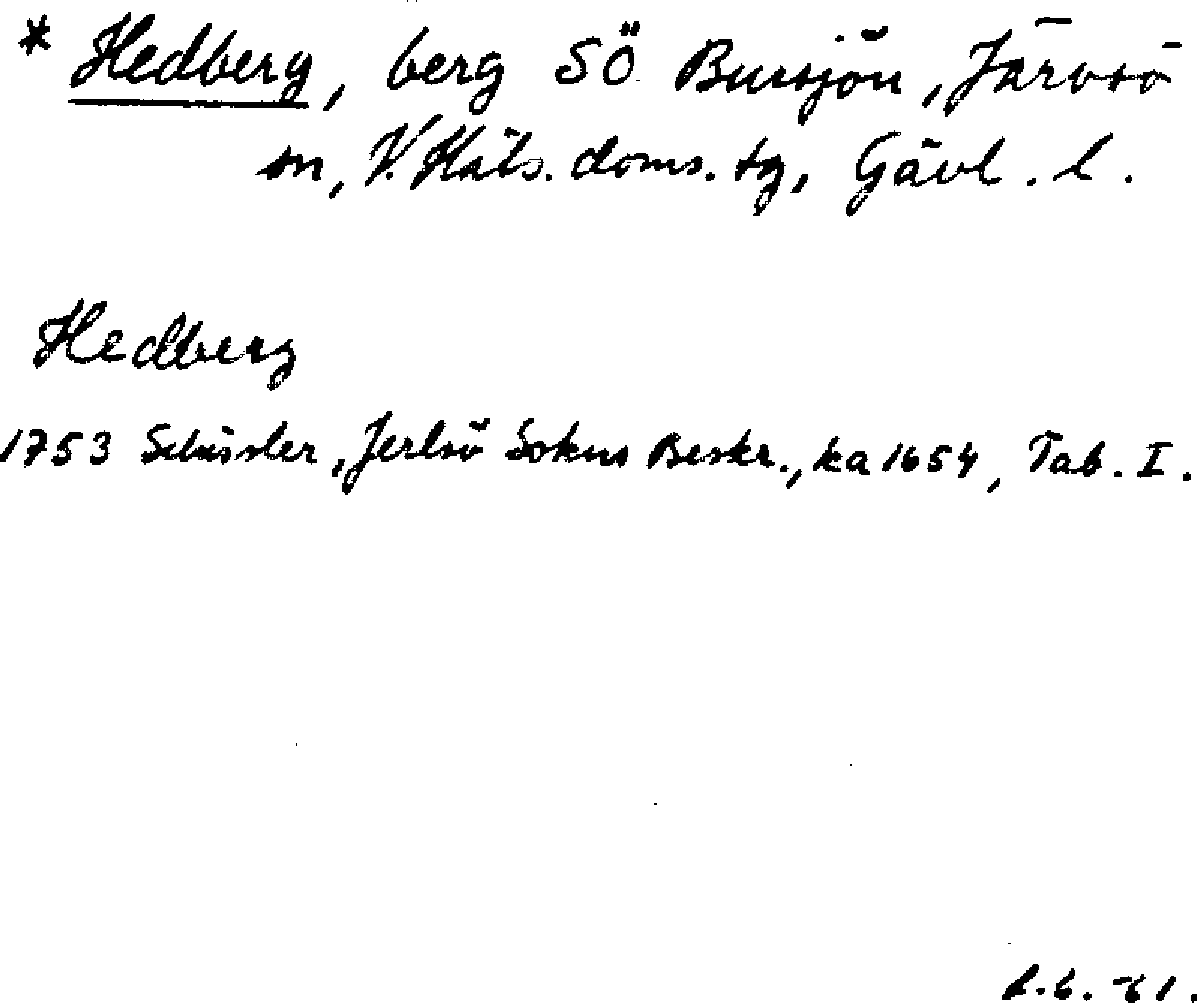 * Hedberg, berg SÖ Bursjön, Järvsö
sn, V. Häls. doms. tg, Gävl. l.
Hedberg
1753 Schissler, Jerlsö Sokns Beskr., ka 1654, Tab. I.
61.